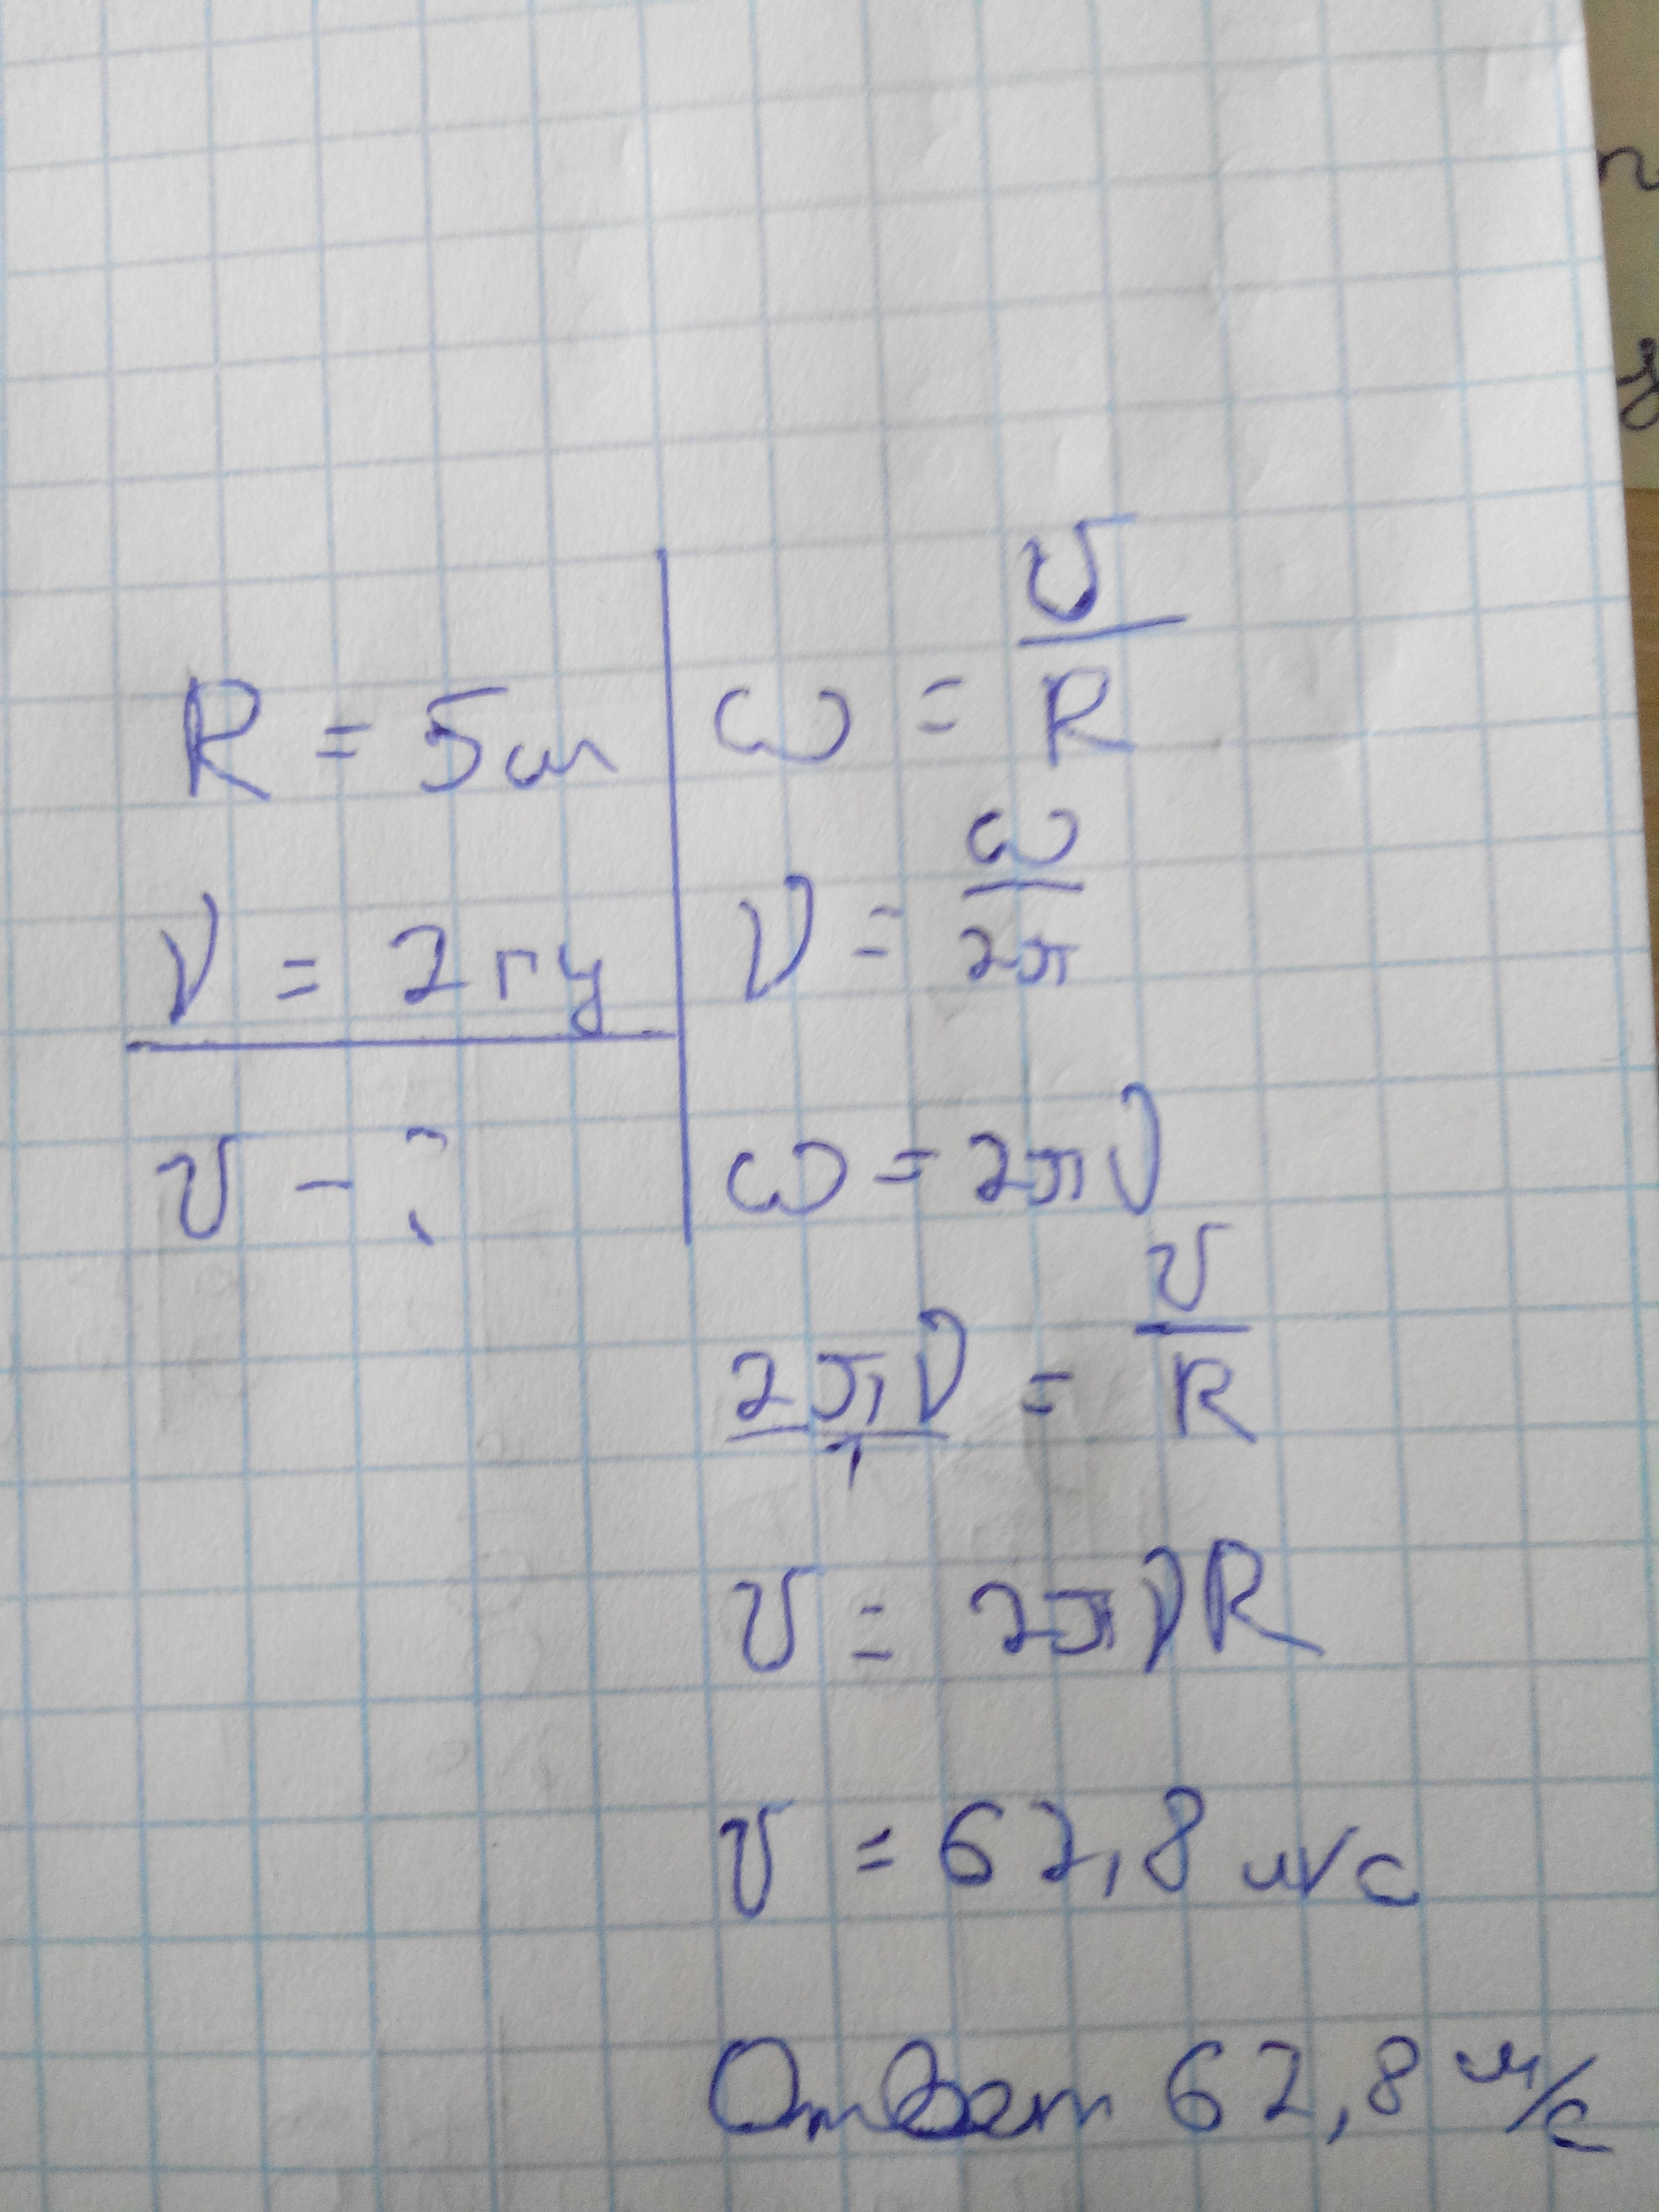 R = 5 м
ν = 2 гц
υ - ?
ω = υ/R
ν = ω/2π
ω = 2πν
2πν/1 = υ/R
υ = 2πνR
υ = 62,8 м/с
Ответ 62,8 м/с